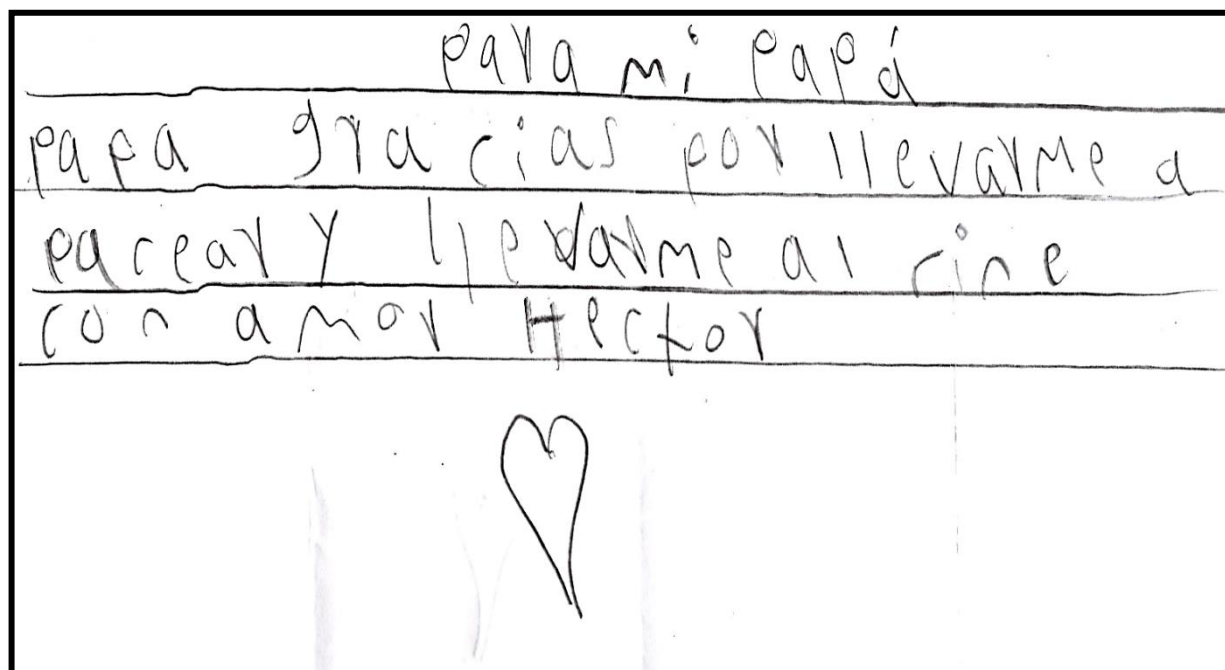 para mi papá
papa gracias por llevarme a
pacear y llevarme al cine
con amor Hector